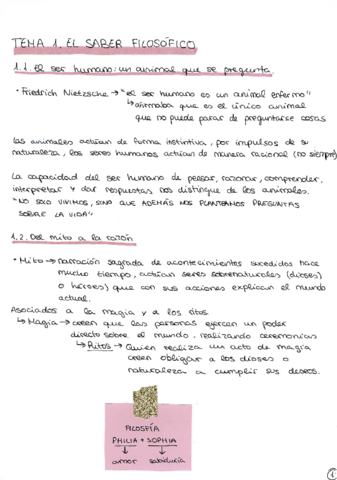 TEMA 1. EL SABER FILOSÓFICO
1.1. El ser humano: un animal que se pregunta.
• Friedrich Nietzsche → "el ser humano es un animal enfermo"
↳ afirmaba que es el único animal
que no puede parar de preguntarse cosas
Los animales actúan de forma instintiva, por impulsos de su
naturaleza, los seres humanos actúan de manera racional (no siempre)
La capacidad del ser humano de pensar, razonar, comprender,
interpretar y dar respuestas nos distingue de los animales.
"NO SOLO VIVIMOS, SINO QUE ADEMÁS NOS PLANTEAMOS PREGUNTAS
SOBRE LA VIDA"
1.2. Del mito a la razón
• Mito → narración sagrada de acontecimientos sucedidos hace
mucho tiempo, actúan seres sobrenaturales (dioses)
o héroes) que con sus acciones explican el mundo
actual.
Asociados a la magia y a los ritos
↳ Magia → creen que las personas ejercen un poder
directo sobre el mundo, realizando ceremonias
↳ Ritos → Quien realiza un acto de magia
creen obligar a los dioses o
naturaleza a cumplir sus deseos.
FILOSFÍA
PHILIA + SOPHIA
↓ ↓
amor sabiduría
1